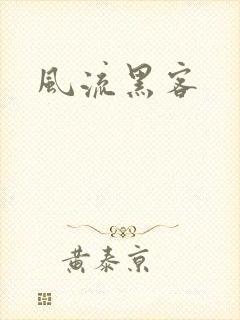 風流黑客
黃泰京